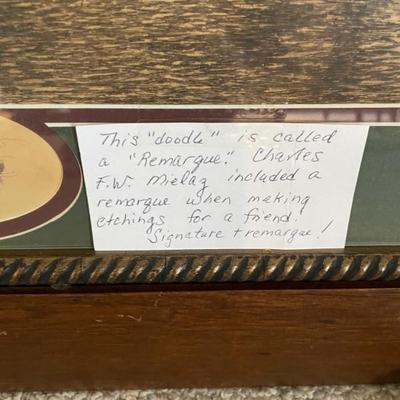 This "doodle" is called
a "Remarque." Charles
F.W. Mielaz included a
remarque when making
etchings for a friend.
Signature + remarque!